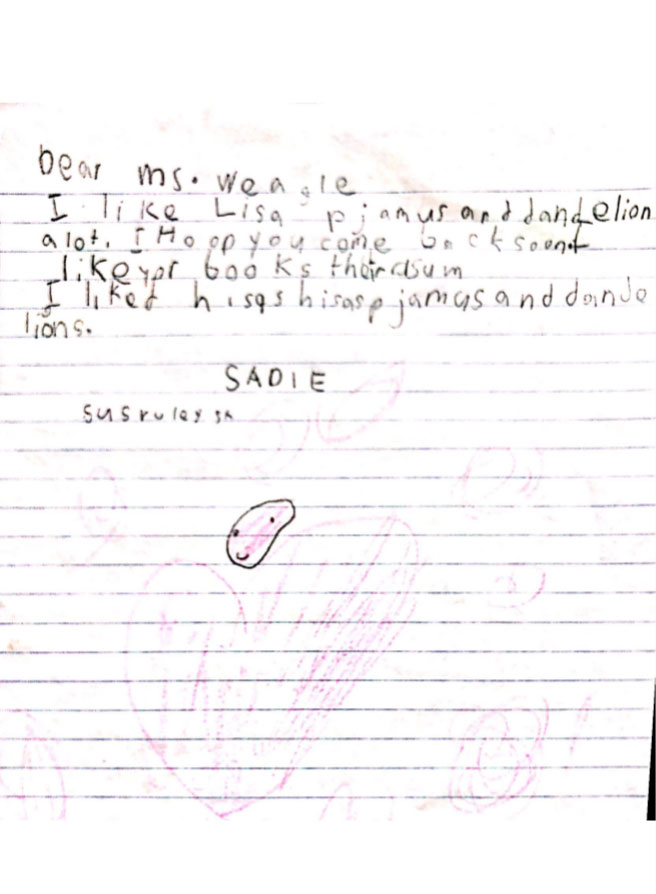 Dear ms. Weagle
I like Lisa pjamus and dandelion
a lot. I Hoop you come back soon I
like yor books their asum
I liked hisqs hisas pjamus and dande
lions.
SADIE